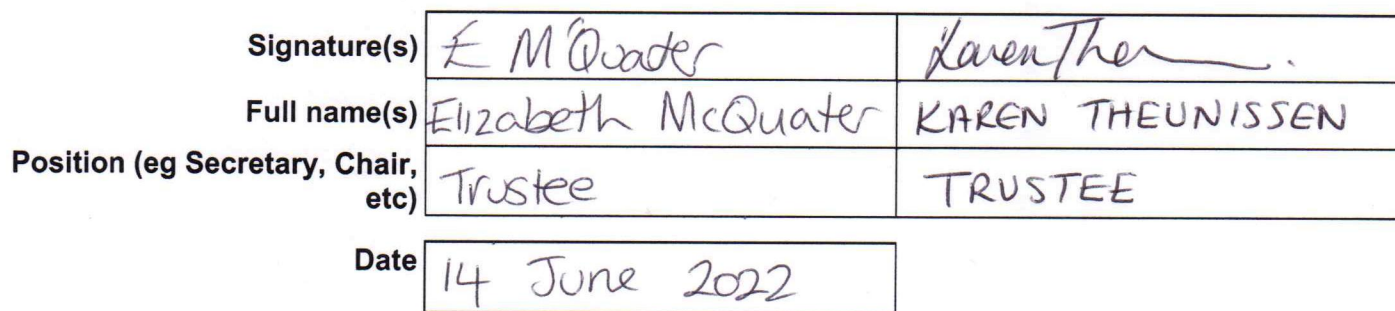 Signature(s) E McQuater Karen The
Full name(s) Elizabeth McQuater KAREN THEUNISSEN
Position (eg Secretary, Chair,
etc) Trustee TRUSTEE
Date 14 June 2022